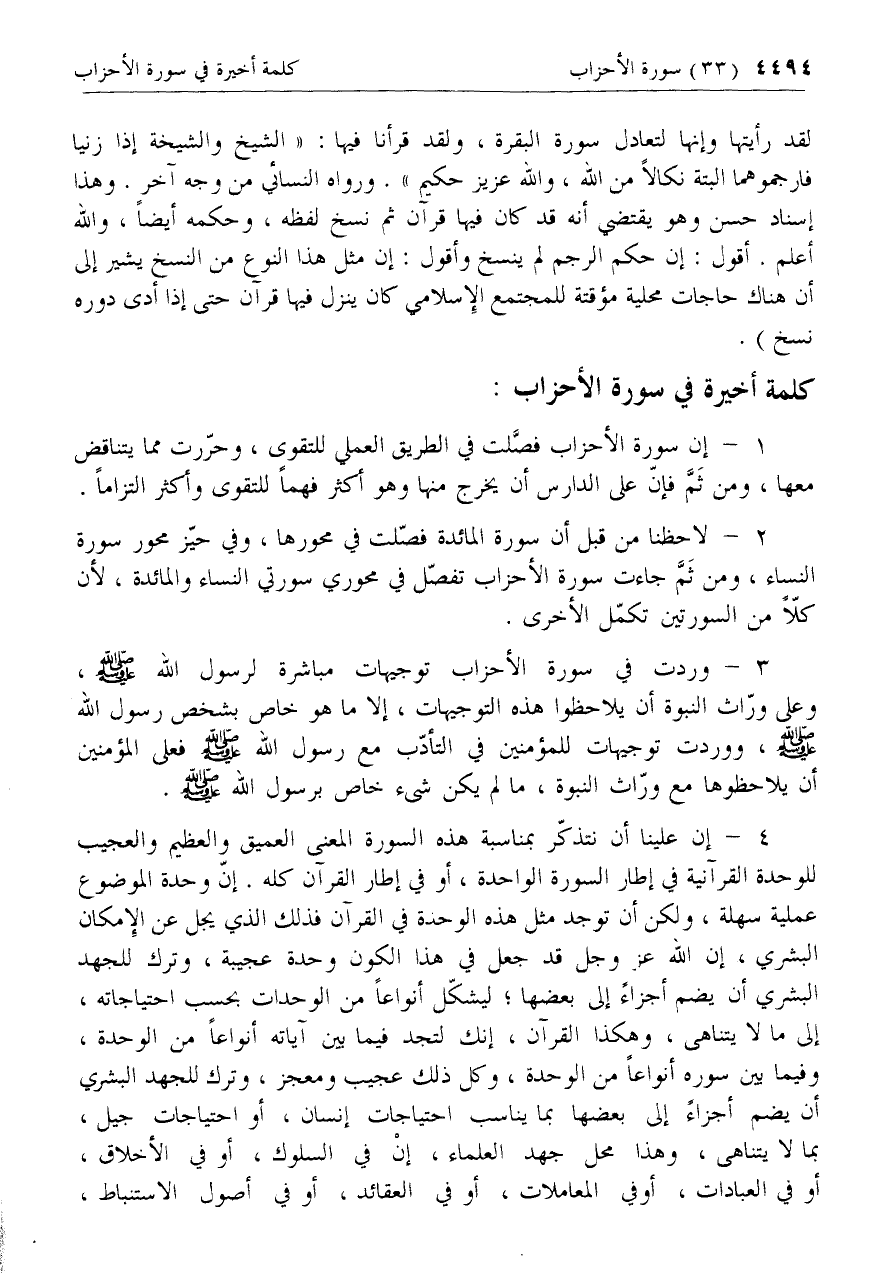 ٤٤٩٤ (٣٣) سورة الأحزاب كلمة أخيرة في سورة الأحزاب
لقد رأيتها وإنها لتعادل سورة البقرة ، ولقد قرأنا فيها : « الشيخ والشيخة إذا زنيا
فارجموهما البتة نكالاً من الله ، والله عزيز حكيم » . ورواه النسائي من وجه آخر . وهذا
إسناد حسن وهو يقتضي أنه قد كان فيها قرآن ثم نسخ لفظه ، وحكمه أيضاً ، والله
أعلم . أقول : إن حكم الرجم لم ينسخ وأقول : إن مثل هذا النوع من النسخ يشير إلى
أن هناك حاجات محلية مؤقتة للمجتمع الإسلامي كان ينزل فيها قرآن حتى إذا أدى دوره
نسخ ) .
كلمة أخيرة في سورة الأحزاب :
١ – إن سورة الأحزاب فصَّلت في الطريق العملي للتقوى ، وحرّرت مما يتناقض
معها ، ومن ثَمَّ فإنّ على الدارس أن يخرج منها وهو أكثر فهماً للتقوى وأكثر التزاماً .
٢ – لاحظنا من قبل أن سورة المائدة فصّلت في محورها ، وفي حيّز محور سورة
النساء ، ومن ثَمَّ جاءت سورة الأحزاب تفصّل في محوري سورتي النساء والمائدة ، لأن
كلّاً من السورتين تكمّل الأخرى .
٣ – وردت في سورة الأحزاب توجيهات مباشرة لرسول الله ﷺ ،
وعلى ورّاث النبوة أن يلاحظوا هذه التوجيهات ، إلا ما هو خاص بشخص رسول الله
ﷺ ، ووردت توجيهات للمؤمنين في التأدّب مع رسول الله ﷺ فعلى المؤمنين
أن يلاحظوها مع ورّاث النبوة ، ما لم يكن شيء خاص برسول الله ﷺ .
٤ – إن علينا أن نتذكّر بمناسبة هذه السورة المعنى العميق والعظيم والعجيب
للوحدة القرآنية في إطار السورة الواحدة ، أو في إطار القرآن كله . إنّ وحدة الموضوع
عملية سهلة ، ولكن أن توجد مثل هذه الوحدة في القرآن فذلك الذي يجل عن الإمكان
البشري ، إن الله عز وجل قد جعل في هذا الكون وحدة عجيبة ، وترك للجهد
البشري أن يضم أجزاءً إلى بعضها ؛ ليشكّل أنواعاً من الوحدات بحسب احتياجاته ،
إلى ما لا يتناهى ، وهكذا القرآن ، إنك لتجد فيما بين آياته أنواعاً من الوحدة ،
وفيما بين سوره أنواعاً من الوحدة ، وكل ذلك عجيب ومعجز ، وترك للجهد البشري
أن يضم أجزاءً إلى بعضها بما يناسب احتياجات إنسان ، أو احتياجات جيل ،
بما لا يتناهى ، وهذا محل جهد العلماء ، إنْ في السلوك ، أو في الأخلاق ،
أو في العبادات ، أوفي المعاملات ، أو في العقائد ، أو في أصول الاستنباط ،